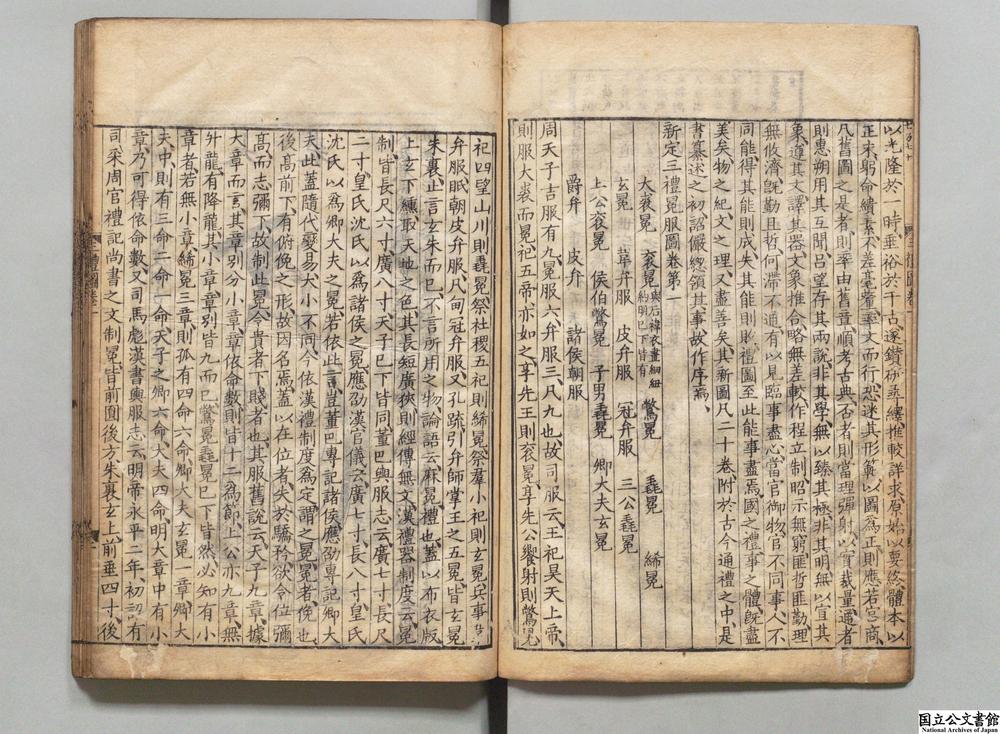 以光隆於一時垂裕於千古遂鑽研至繹推較詳求原始以要終體本以
正末躬命繢素不差毫釐率文而行恐迷其形範以圖為正則應若宮商
凡舊圖之是者則率由舊章順考古典否者則當理彈射以實裁量通者
則惠朔用其互聞呂望存其兩說非其學無以臻其極非其明無以宜其
象遵其文譯其器文象推合略無差較作程立制昭示無窮匪哲匪勤理
無攸濟旣勤且哲何滯不通有以見臨事盡心當官御物官不同事人不
同能得其能則成失其能則敗禮圖至此能事盡焉國之禮事之體旣盡
美矣物之紀文之理又盡善矣其新圖凡二十卷附於古今通禮之中是
書纂述之初詔儼總領其事故作序焉
新定三禮冕服圖卷第一
大裘冕　袞冕與后褘衣畫細紐約明已下皆有　鷩冕　毳冕　絺冕
玄冕　韋弁服　皮弁服　冠弁服　三公毳冕
上公袞冕　侯伯鷩冕　子男毳冕　卿大夫玄冕
爵弁　皮弁　諸侯朝服
周天子吉服有九冕服六弁服三凡九也故司服云王祀昊天上帝
則服大裘而冕祀五帝亦如之享先王則袞冕享先公饗射則鷩冕
祀四望山川則毳冕祭社稷五祀則絺冕祭羣小祀則玄冕兵事韋
弁服眂朝皮弁服凡甸冠弁服又孔疏引弁師掌王之五冕皆玄冕
朱裏止言玄朱而已不言所用之物論語云麻冕禮也蓋以布衣版
上玄下纁取天地之色其長短廣狹則經傳無文漢禮器制度云冕
制皆長尺六寸廣八寸天子已下皆同董巴輿服志云廣七寸長尺
二寸皇氏沈氏以為諸侯之冕應劭漢官儀云廣七寸長八寸皇氏
沈氏以為卿大夫之冕若依此言豈董巴專記諸侯應劭專記卿大
夫此蓋隨代變易大小不同今依漢禮制度為定謂之冕冕者俛也
後高前下有俯俛之形故因名焉蓋以在位者失於驕矜欲令位彌
高而志彌下故制此冕令貴者下賤者也其服舊說云天子九章據
大章而言其章別分小章章依命數則皆十二為節上公亦九章無
升龍有降龍其小章章別皆九而已鷩冕毳冕已下皆然必知有小
章者若無小章絺冕三章則孤有四命六命卿大夫玄冕一章卿大
夫中則有三命二命一命天子之卿六命大夫四命明大章中有小
章乃可得依命數又司馬彪漢書輿服志云明帝永平二年初詔有
司采周官禮記尚書之文制冕皆前圓後方朱裏玄上前垂四寸後
三禮圖卷一
国立公文書館
National Archives of Japan